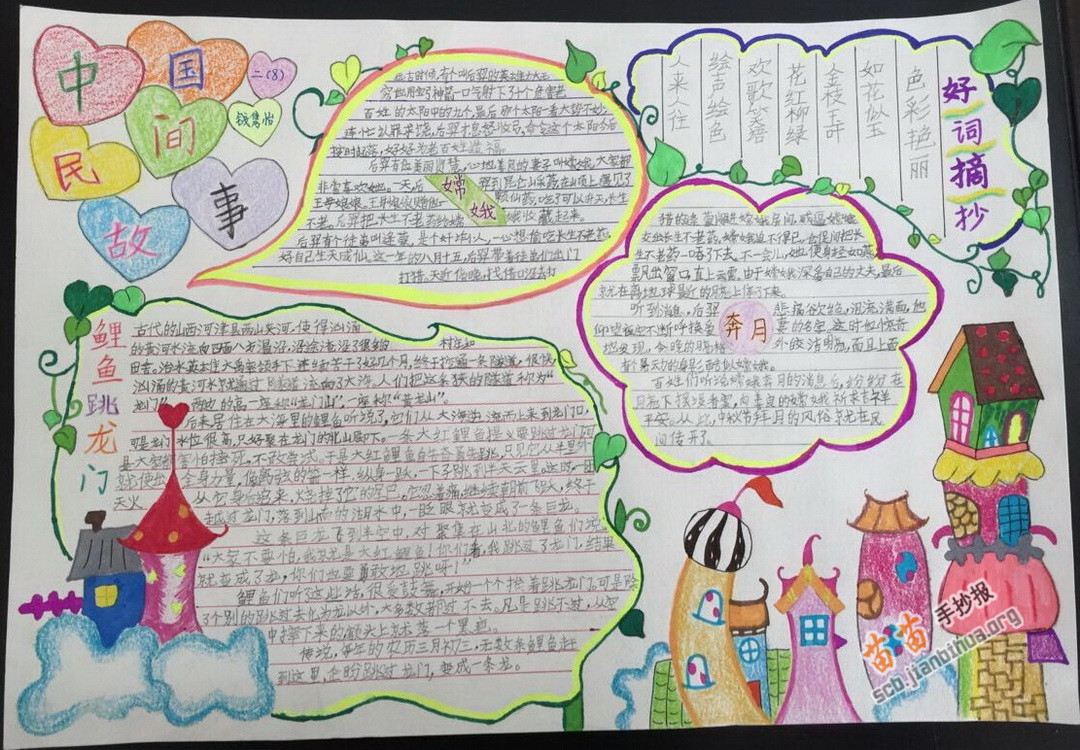 中国
民间
故事
二(8)
钱隽怡
好词摘抄
色彩艳丽
如花似玉
金枝玉叶
花红柳绿
欢歌笑语
绘声绘色
人来人往
嫦娥
有个叫后羿的英雄力大无
穷他用宝弓神箭一口气射下了九个危害
百姓的太阳中的九个最后那个太阳一看大势不妙
连忙认罪求饶,后羿才息怒收弓,命令这个太阳今后
按时起落,好好为老百姓造福。
后羿有位美丽贤慧,心地善良的妻子叫嫦娥,大家都
非常喜欢她。一天后羿到昆仑山采药在山顶上遇见了
王母娘娘,
仙药,吃了可以升天,长生
不老。后羿把长生不老药给嫦娥收藏起来。
后羿有个徒弟叫逢蒙,是个奸坏小人,一心想偷吃长生不老药,
好自己生天成仙。这一年的八月十五,后羿带着徒弟们出门
打猎,天近傍晚,找借口没去打
奔月
猎的逢蒙闯进嫦娥房间,威逼嫦娥
交出长生不老药。嫦娥迫不得已,仓促间把长
生不老药一口吞了下去。不一会儿,她便身轻如燕,
飘出窗口,直上云霄。由于嫦娥深爱自己的丈夫,最后
就在离地球最近的月亮上停了下来。
听到消息,后羿悲痛欲绝,泪流满面,他
仰望夜空不断呼换爱妻的名字,这时他惊奇
地发现,今晚的月格外皎洁明亮,而且上面
有个晃动的身影
百姓们听说嫦娥奔月的消息后,纷纷在
月亮下摆设香案,向善良的嫦娥祈求吉祥
平安。从此,中秋节拜月的风俗就在民
间传开了。
鲤鱼跳龙门
古代的山西河津县两山夹河,使得汹涌
的黄河水流向四面八方漫沿,沿途淹没了很多的村庄和
田舍。治水英雄在大禹率领手下,连续苦干了好几个月,终于挖通一条隧道,很快,
汹涌的黄河水就通过隧道流向了大海。人们把这条狭的隧道称为“
龙门”,两边的高一座称“龙门山”,一座称“黄龙山”。
后来居住在大海里的鲤鱼听说了,它们从大海逆流而上来到龙门口,
可是龙门水位很高,只好聚在龙门的北山脚下。一条大红鲤鱼提义要跳过龙门,可
是大家都害怕摔死,不敢尝试。于是大红鲤鱼自告奋勇先跳,只见它从半里外
就使出全身力量,像离弦的箭一样,纵身一跃,一下子跳到半天云里。这时一团
天火从它身后追来,烧掉了它的尾巴,它忍着痛,继续朝前飞跃,终于
越过龙门,落到山南的湖水中,一眨眼就变成了一条巨龙。
这条巨龙飞到半空中,对聚集在山北的鲤鱼们说:
“大家不要怕,我就是大红鲤鱼!你们看,我跳过了龙门,结果
就变成了龙,你们也要勇敢地跳呀!”
鲤鱼们听了这些话,很受鼓舞,开始一个个挨着跳龙门。可是除
了个别的跳过去化为龙以外,大多数都过不去。凡是跳不过,从空
中摔下来的,额头上就落一个黑疤。
传说,每年的农历三月初三,无数条鲤鱼赶
到这里,企盼跳过龙门,变成一条龙。
苗苗手抄报
scb.jianbihua.org